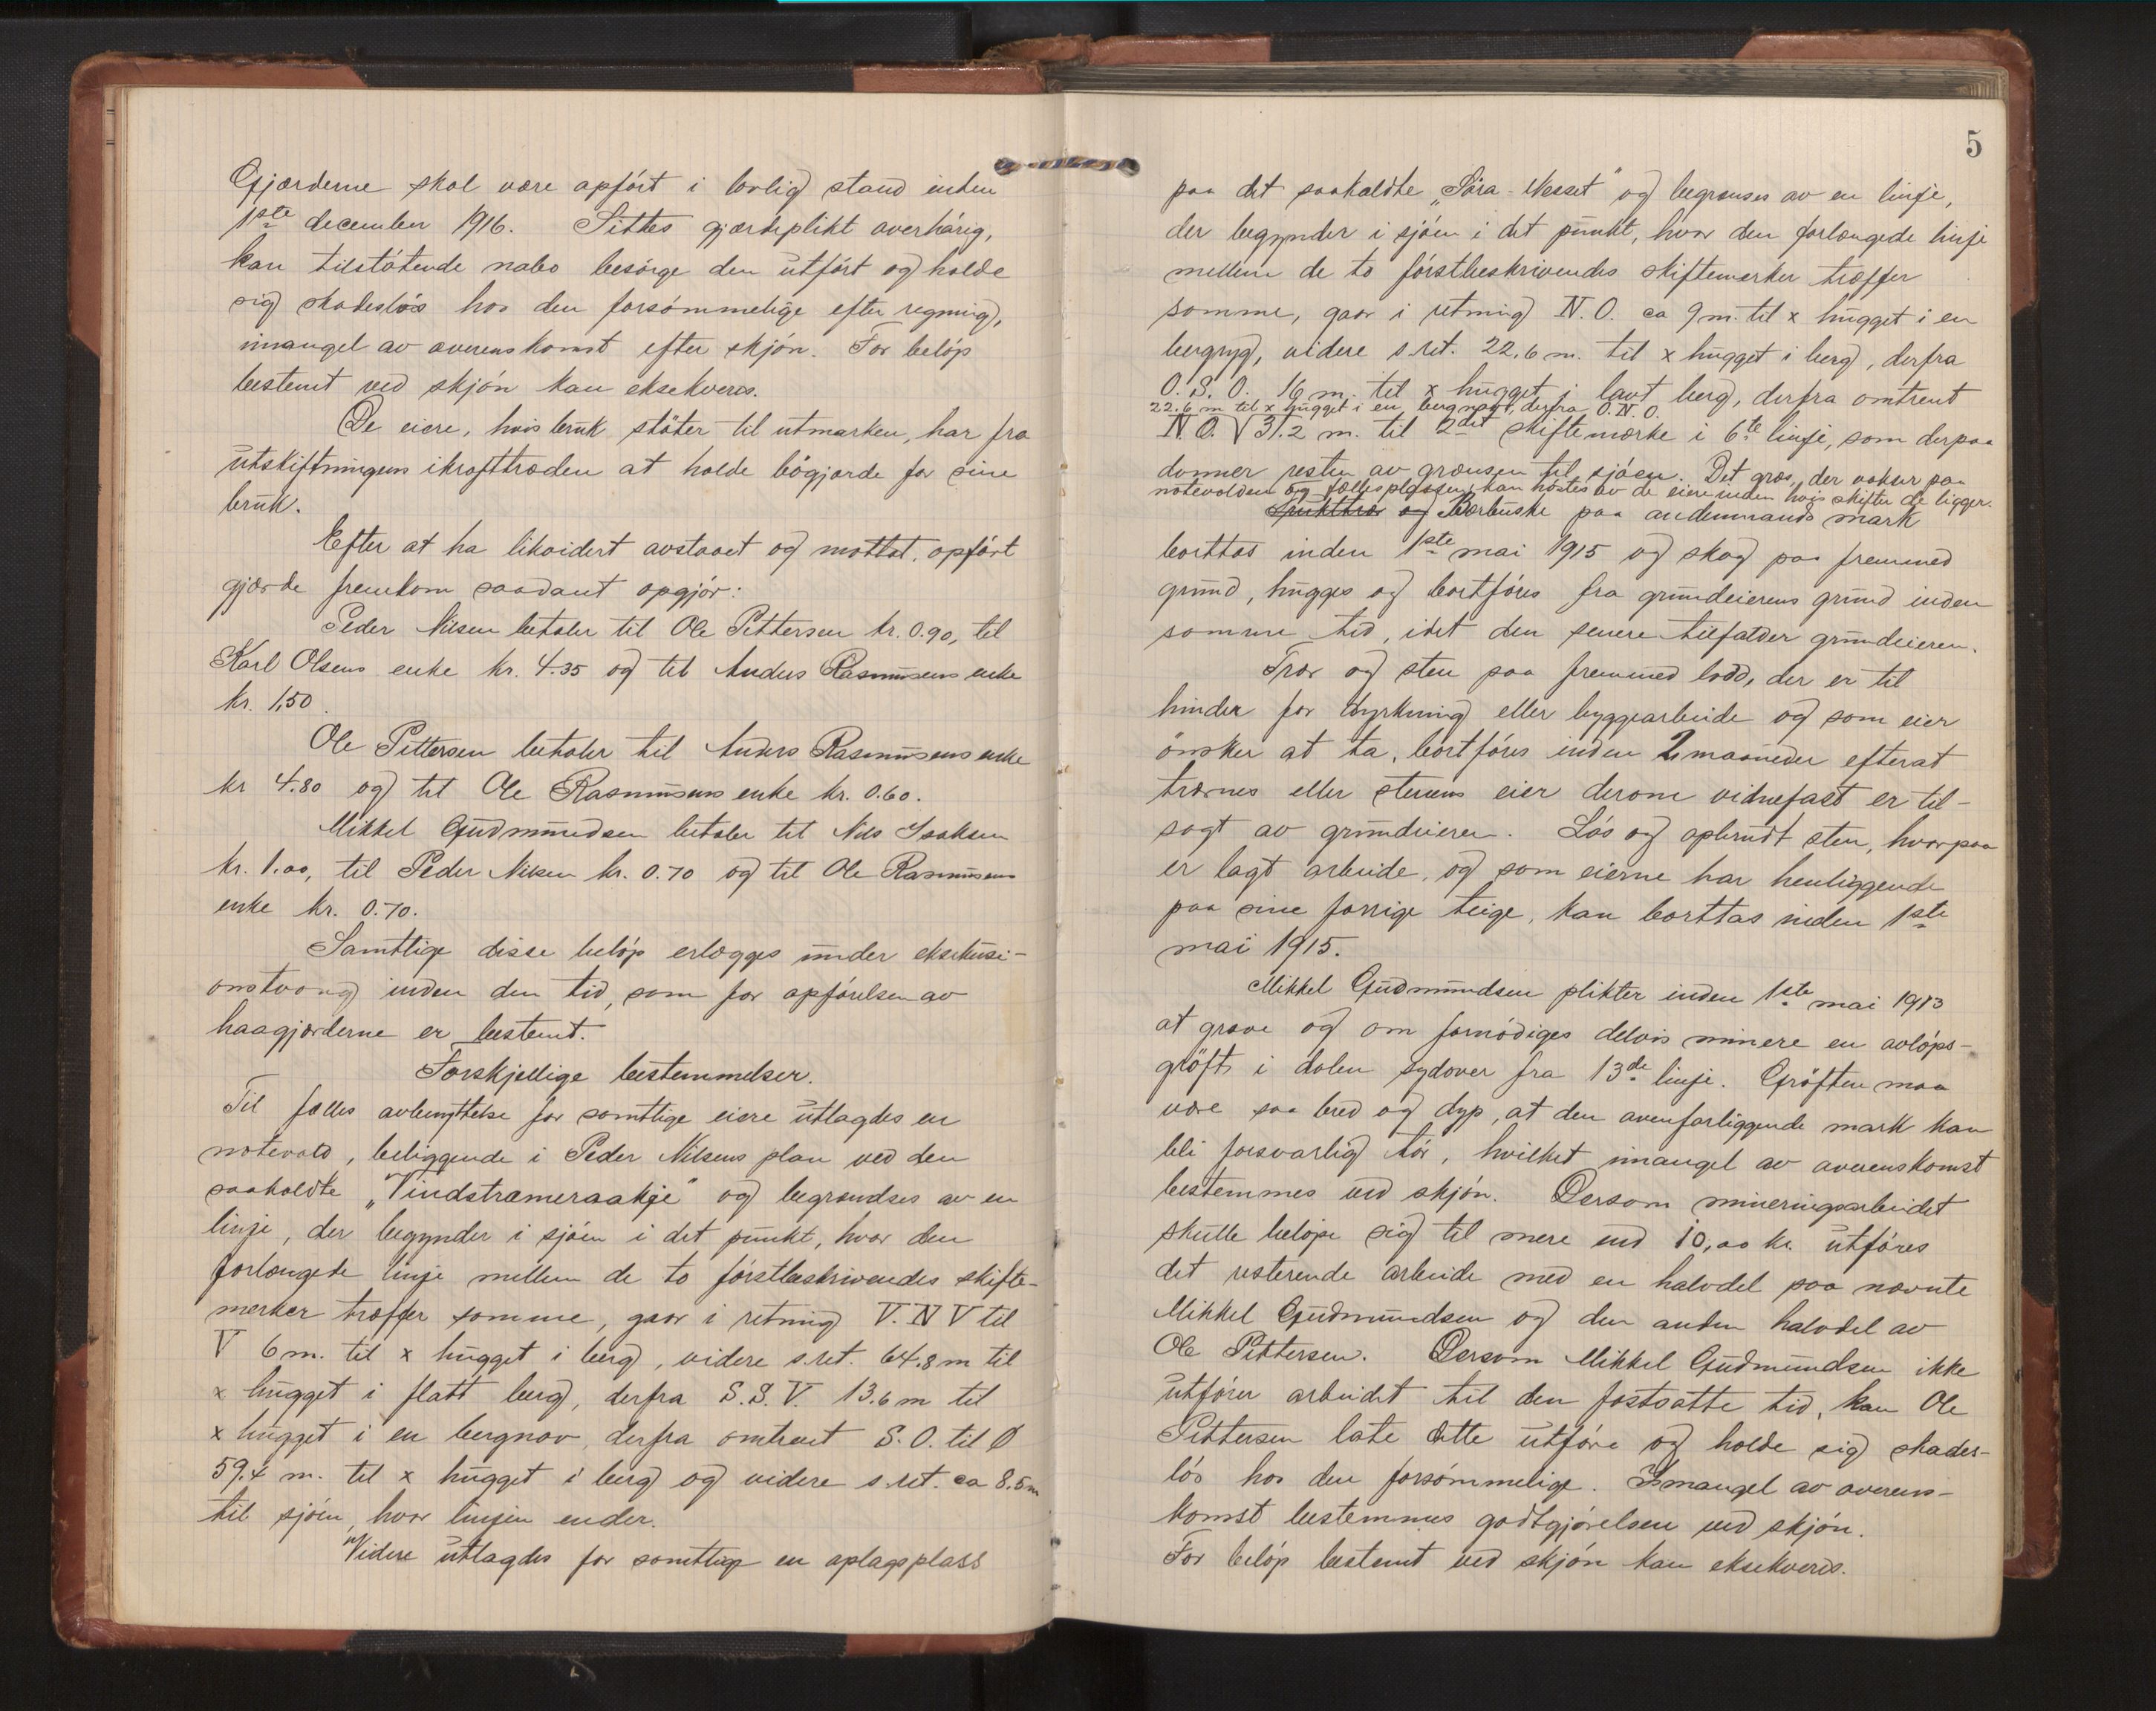 Gjærderne skal være opført i lovlig stand inden
1ste december 1916. Sittes gjærdeplikt overhørig,
kan tilstøtende nabo besørge den utført og holde
sig skadesløs hos den forsømmelige efter regning,
imangel av overenskomst efter skjøn. For beløp
bestemt ved skjøn kan eksekveres.
De eiere, hvis bruk støter til utmarken, har fra
utskiftningens ikrafttræden at holde bøgjærde for sine
bruk.
Efter at ha likvidert avstaaet og mottat, opført
gjærde fremkom saadant opgjør:
Peder Nilsen betaler til Ole Pettersen kr. 0.90, til
Karl Olsens enke kr. 4.35 og til Anders Rasmusens enke
kr. 1,50.
Ole Pettersen betaler til Anders Rasmusens enke
kr 4.80 og til Ole Rasmusens enke kr. 0.60.
Mikkel Gudmundsen betaler til Nils Isaksen
kr. 1.00, til Peder Nilsen kr. 0.70 og til Ole Rasmusens
enke kr. 0.70.
Samtlige disse beløp erlægges under eksekusi-
onstvang inden den tid, som for opførelsen av
haagjærderne er bestemt.
Forskjellige bestemmelser.
Til fælles avbenyttelse for samtlige eiere utlagdes en
notevold, beliggende i Peder Nilsens plan ved den
saakaldte „Vindstrameraakje" og begrændses av en
linje, der begynder i sjøen i det punkt, hvor den
forlængede linje mellem de to førstbeskrivendes skifte-
merker træffer samme, gaar i retning V.N V til
V 6 m. til x hugget i berg, videre s.ret. 64.8 m til
x hugget i flatt berg, derfra S.S.V. 13.6 m til
x hugget i en bergnov, derfra omtrent S.O. til Ø
59.4 m. til x hugget i berg og videre s.ret. ca 8.5 m
til sjøen, hvor linjen ender.
Videre utlagdes for samtlige en oplagsplass
5
paa det saakaldte „Søra-Nesset" og begrænses av en linje,
der begynder i sjøen i det punkt, hvor den forlængede linje
mellem de to førstbeskrivendes skiftemerker træffer
samme, gaar i retning N.O. ca 9 m. til x hugget i en
bergryg, videre s.ret. 22,6 m. til x hugget i berg, derfra
O.S.O. 16 m. til x hugget i lavt berg, derfra omtrent
22.6 m til x hugget i en bergnov, derfra O.N.O.
N.O. V 31.2 m. til 2det skiftemærke i 6te linje, som derpaa
danner resten av grænsen til sjøen. Det græs, der vokser paa
notevolden og fællesplassen, kan høstes av de eiere inden hvis skifter de ligger.
Frukttrær og Bærbuske paa andenmands mark
borttas inden 1ste mai 1915 og skog paa fremmed
grund, hugges og bortføres fra grundeierens grund inden
samme tid, idet den senere tilfalder grundeieren.
Trær og sten paa fremmed lodd, der er til
hinder for dyrkning eller byggearbeide og som eier
ønsker at ta, bortføres inden 2 maaneder efterat
trærnes eller stenens eier derom vidnefast er til-
sagt av grundeieren. Løs og opbrudt sten, hvorpaa
er lagt arbeide, og som eierne har henliggende
paa sine forrige teige, kan borttas inden 1ste
mai 1915.
Mikkel Gudmundsen plikter inden 1ste mai 1913
at grave og om fornødiges delvis minere en avløps-
grøft i dalen sydover fra 13de linje. Grøften maa
være saa bred og dyp, at den ovenforliggende mark kan
bli forsvarlig tør, hvilket imangel av overenskomst
bestemmes ved skjøn. Dersom mineringsarbeidet
skulle beløpe sig til mere end 10,00 kr. utføres
det resterende arbeide med en halvdel paa nævnte
Mikkel Gudmundsen og den anden halvdel av
Ole Pettersen. Dersom Mikkel Gudmundsen ikke
utfører arbeidet til den fastsatte tid, kan Ole
Pettersen late dette utføre og holde sig skades-
løs hos den forsømmelige. Imangel av overens-
komst bestemmes godtgjørelsen ved skjøn.
For beløp bestemt ved skjøn kan eksekveres.